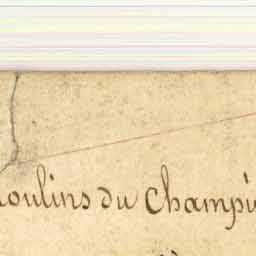 oulins du Champi